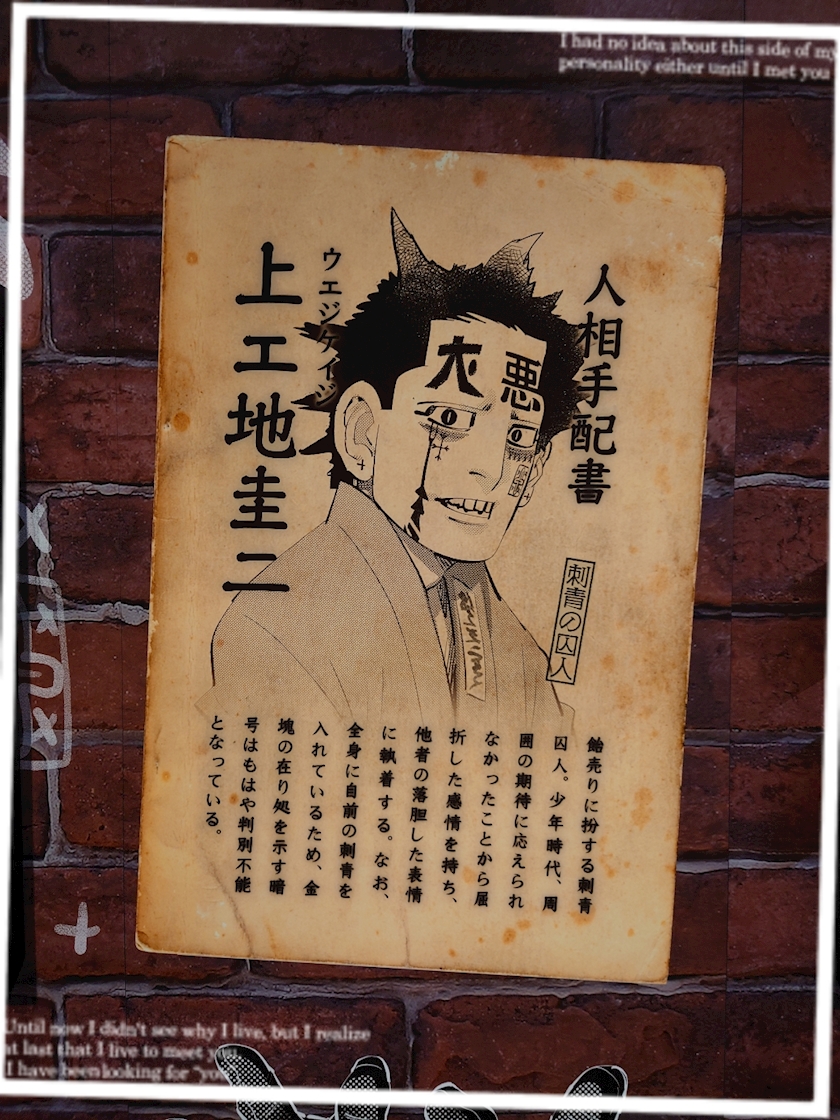 I had no idea about this side of my
personality either until I met you
人相手配書
刺青の囚人
悪犬
ウエジケイジ
上エ地圭二
飴売りに扮する刺青
囚人。少年時代、周
囲の期待に応えられ
なかったことから屈
折した感情を持ち、
他者の落胆した表情
に執着する。なお、
全身に自前の刺青を
入れているため、金
塊の在り処を示す暗
号はもはや判別不能
となっている。
Until now I didn't see why I live, but I realize
at last that I live to meet you
I have been looking for "you